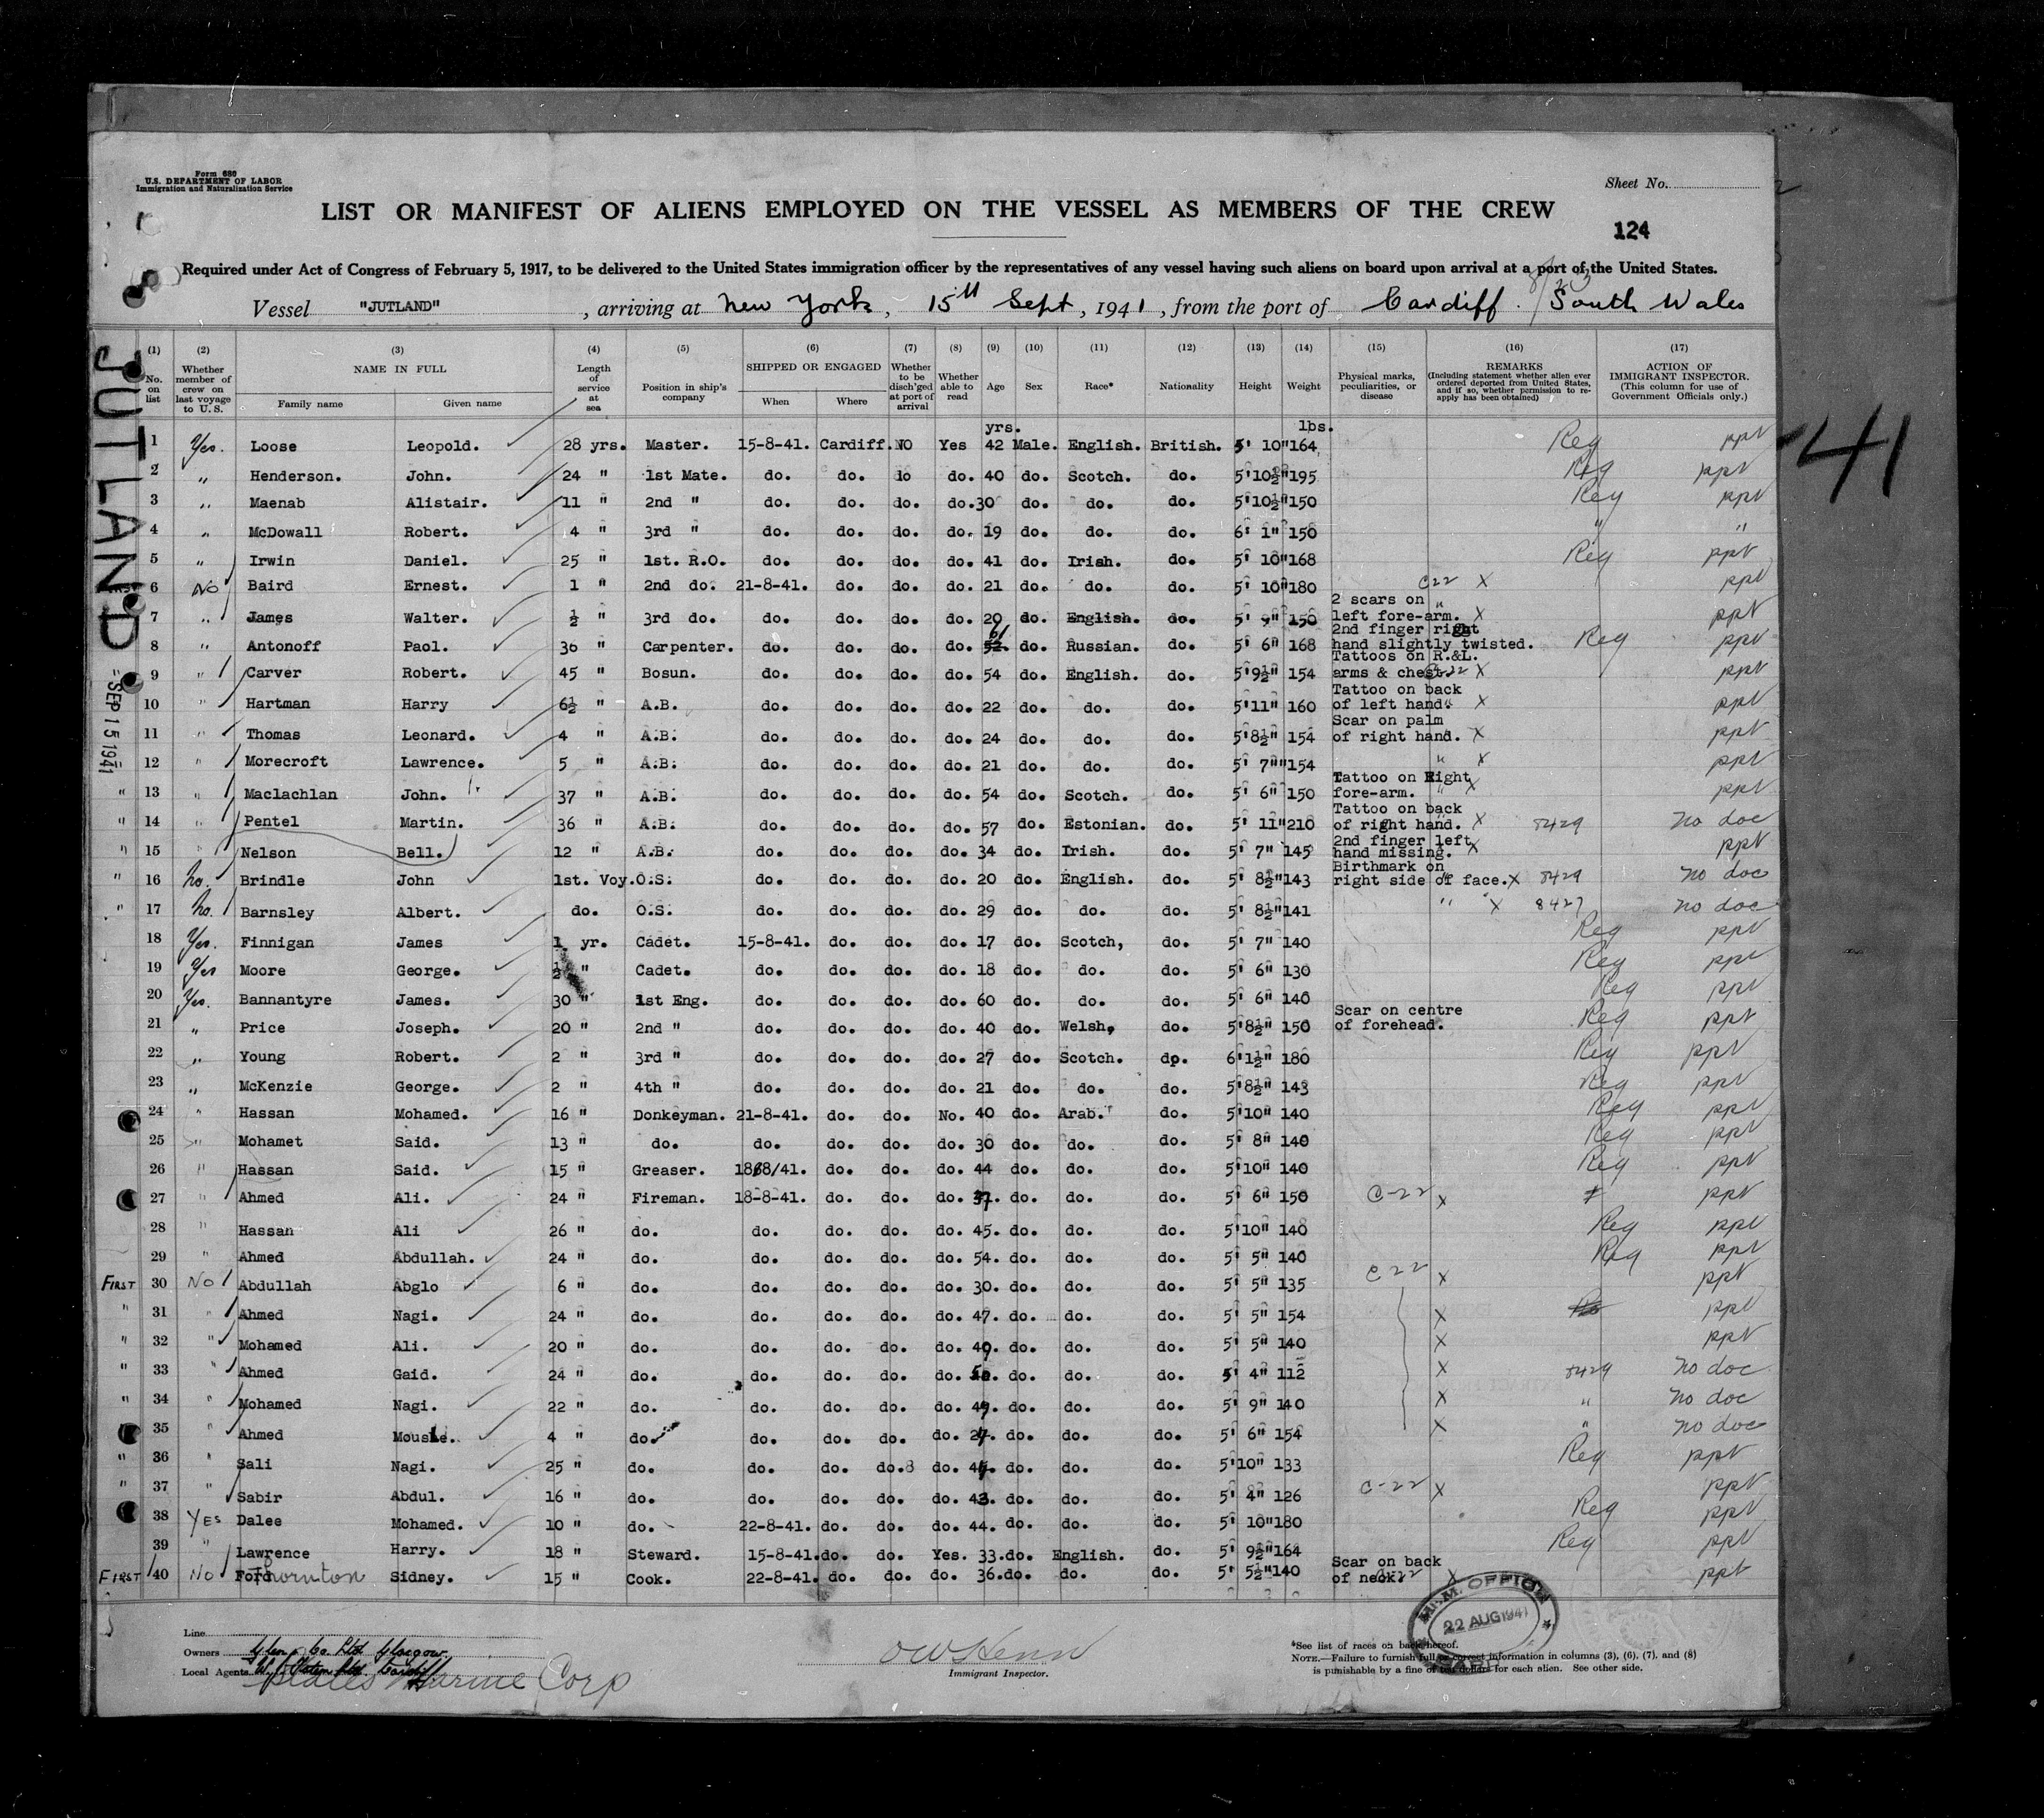 Form 680
U.S. DEPARTMENT OF LABOR
Immigration and Naturalization Service
Sheet No.
LIST OR MANIFEST OF ALIENS EMPLOYED ON THE VESSEL AS MEMBERS OF THE CREW
124
Required under Act of Congress of February 5, 1917, to be delivered to the United States immigration officer by the representatives of any vessel having such aliens on board upon arrival at a port of the United States.
Vessel "JUTLAND", arriving at New York, 15th Sept, 1941, from the port of Cardiff. South Wales
JUTLAND
SEP 15 1941
41
(1) (2) (3) (4) (5) (6) (7) (8) (9) (10) (11) (12) (13) (14) (15) (16) (17)
No. on list
Whether member of crew on last voyage to U. S.
NAME IN FULL
Family name Given name
Length of service at sea
Position in ship's company
SHIPPED OR ENGAGED
When Where
Whether to be disch'ged at port of arrival
Whether able to read
Age Sex Race* Nationality Height Weight
Physical marks, peculiarities, or disease
REMARKS
(Including statement whether alien ever ordered deported from United States, and if so, whether permission to re-apply has been obtained)
ACTION OF IMMIGRANT INSPECTOR.
(This column for use of Government Officials only.)
yrs. lbs.
1 Yes. Loose Leopold. 28 yrs. Master. 15-8-41. Cardiff. NO Yes 42 Male. English. British. 5' 10" 164 Reg ppt
2 " Henderson. John. 24 " 1st Mate. do. do. do do. 40 do. Scotch. do. 5'10½" 195 Reg ppt
3 " Maenab Alistair. 11 " 2nd " do. do. do. do. 30 do. do. do. 5'10½" 150 Reg ppt
4 " McDowall Robert. 4 " 3rd " do. do. do. do. 19 do. do. do. 6' 1" 150 " "
5 " Irwin Daniel. 25 " 1st. R.O. do. do. do. do. 41 do. Irish. do. 5' 10" 168 Reg ppt
6 No Baird Ernest. 1 " 2nd do. 21-8-41. do. do. do. 21 do. do. do. 5' 10" 180 C22 X ppt
7 " James Walter. ½ " 3rd do. do. do. do. do. 20 do. English. do. 5' 9" 150 2 scars on left fore-arm. " X ppt
8 " Antonoff Paol. 30 " Carpenter. do. do. do. do. 52 61 do. Russian. do. 5' 6" 168 2nd finger right hand slightly twisted. Reg ppt
9 " Carver Robert. 45 " Bosun. do. do. do. do. 54 do. English. do. 5'9½" 154 Tattoos on R.&L. arms & chest. C-22 X ppt
10 " Hartman Harry 6½ " A.B. do. do. do. do. 22 do. do. do. 5'11" 160 Tattoo on back of left hand. " X ppt
11 " Thomas Leonard. 4 " A.B. do. do. do. do. 24 do. do. do. 5'8½" 154 Scar on palm of right hand. X ppt
12 " Morecroft Lawrence. 5 " A.B. do. do. do. do. 21 do. do. do. 5' 7" 154 " X ppt
" 13 " Maclachlan John. 37 " A.B. do. do. do. do. 54 do. Scotch. do. 5' 6" 150 Tattoo on Right fore-arm. " X ppt
" 14 " Pentel Martin. 36 " A.B. do. do. do. do. 57 do. Estonian. do. 5' 11" 210 Tattoo on back of right hand. X 8429 no doc
" 15 " Nelson Bell. 12 " A.B. do. do. do. do. 34 do. Irish. do. 5' 7" 145 2nd finger left hand missing. X ppt
" 16 No. Brindle John 1st. Voy. O.S. do. do. do. do. 20 do. English. do. 5' 8½" 143 Birthmark on right side of face. X 8429 no doc
" 17 No. Barnsley Albert. do. O.S. do. do. do. do. 29 do. do. do. 5' 8½" 141 " X 8427 no doc
18 Yes. Finnigan James 1 yr. Cadet. 15-8-41. do. do. do. 17 do. Scotch, do. 5' 7" 140 Reg ppt
19 Yes Moore George. ½ " Cadet. do. do. do. do. 18 do. do. do. 5' 6" 130 Reg ppt
20 Yes. Bannantyre James. 30 " 1st Eng. do. do. do. do. 60 do. do. do. 5' 6" 140 Reg ppt
21 " Price Joseph. 20 " 2nd " do. do. do. do. 40 do. Welsh, do. 5'8½" 150 Scar on centre of forehead. Reg ppt
22 " Young Robert. 2 " 3rd " do. do. do. do. 27 do. Scotch. do. 6'1½" 180 Reg ppt
23 " McKenzie George. 2 " 4th " do. do. do. do. 21 do. do. do. 5'8½" 143 Reg ppt
24 " Hassan Mohamed. 16 " Donkeyman. 21-8-41. do. do. No. 40 do. Arab. do. 5'10" 140 Reg ppt
25 " Mohamet Said. 13 " do. do. do. do. do. 30 do. do. do. 5' 8" 140 Reg ppt
26 " Hassan Said. 15 " Greaser. 18/8/41. do. do. do. 44 do. do. do. 5'10" 140 Reg ppt
27 " Ahmed Ali. 24 " Fireman. 18-8-41. do. do. do. 37. do. do. do. 5' 6" 150 C-22 X ppt
28 " Hassan Ali 26 " do. do. do. do. do. 45. do. do. do. 5'10" 140 Reg ppt
29 " Ahmed Abdullah. 24 " do. do. do. do. do. 54. do. do. do. 5' 5" 140 Reg ppt
FIRST 30 NO Abdullah Abglo 6 " do. do. do. do. do. 30. do. do. do. 5' 5" 135 C 22 X ppt
" 31 " Ahmed Nagi. 24 " do. do. do. do. do. 47. do. do. do. 5' 5" 154 X ppt
" 32 " Mohamed Ali. 20 " do. do. do. do. do. 49. do. do. do. 5' 5" 140 X ppt
" 33 " Ahmed Gaid. 24 " do. do. do. do. do. do. do. do. 5' 4" 112 X 8429 no doc
" 34 " Mohamed Nagi. 22 " do. do. do. do. do. do. do. do. 5' 9" 140 X " no doc
" 35 " Ahmed 4 " do. do. do. do. do. do. do. do. 5' 6" 154 X " no doc
" 36 " Sali Nagi. 25 " do. do. do. do. do. do. do. do. 5'10" 133 Reg ppt
" 37 " Sabir Abdul. 16 " do. do. do. do. do. 43. do. do. do. 5' 4" 126 C-22 X ppt
38 YES Dalee Mohamed. 10 " do. 22-8-41. do. do. do. 44. do. do. do. 5' 10" 180 Reg ppt
39 " Lawrence Harry. 18 " Steward. 15-8-41. do. do. Yes. 33. do. English. do. 5' 9½" 164 Reg ppt
FIRST 40 NO Ford Thornton Sidney. 15 " Cook. 22-8-41. do. do. do. 36. do. do. do. 5' 5½" 140 Scar on back of neck. X ppt
Line
Owners Glen & Co. Ltd. Glasgow.
Local Agents Cardiff
States Marine Corp
Immigrant Inspector.
22 AUG 1941
*See list of races on back hereof.
NOTE.—Failure to furnish full or correct information in columns (3), (6), (7), and (8)
is punishable by a fine of ten dollars for each alien. See other side.